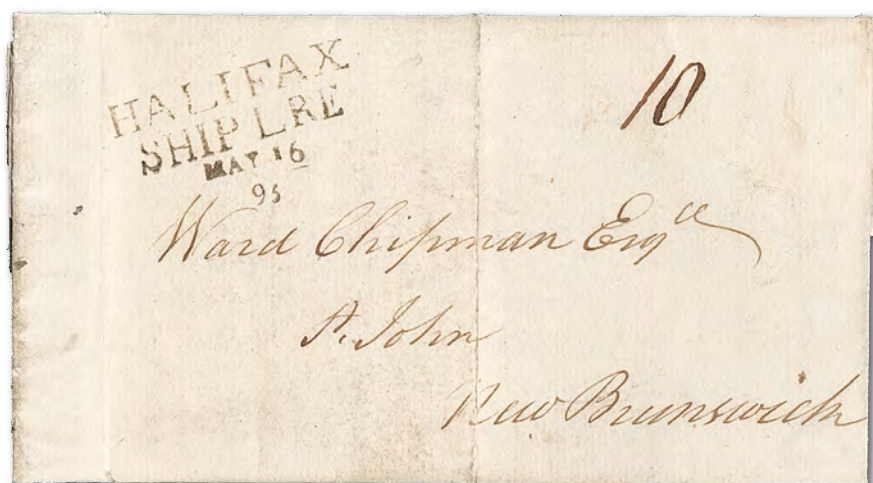 HALIFAX
SHIP LRE
MAY 16
95
10
Ward Chipman Esqre
St. John
New Brunswick